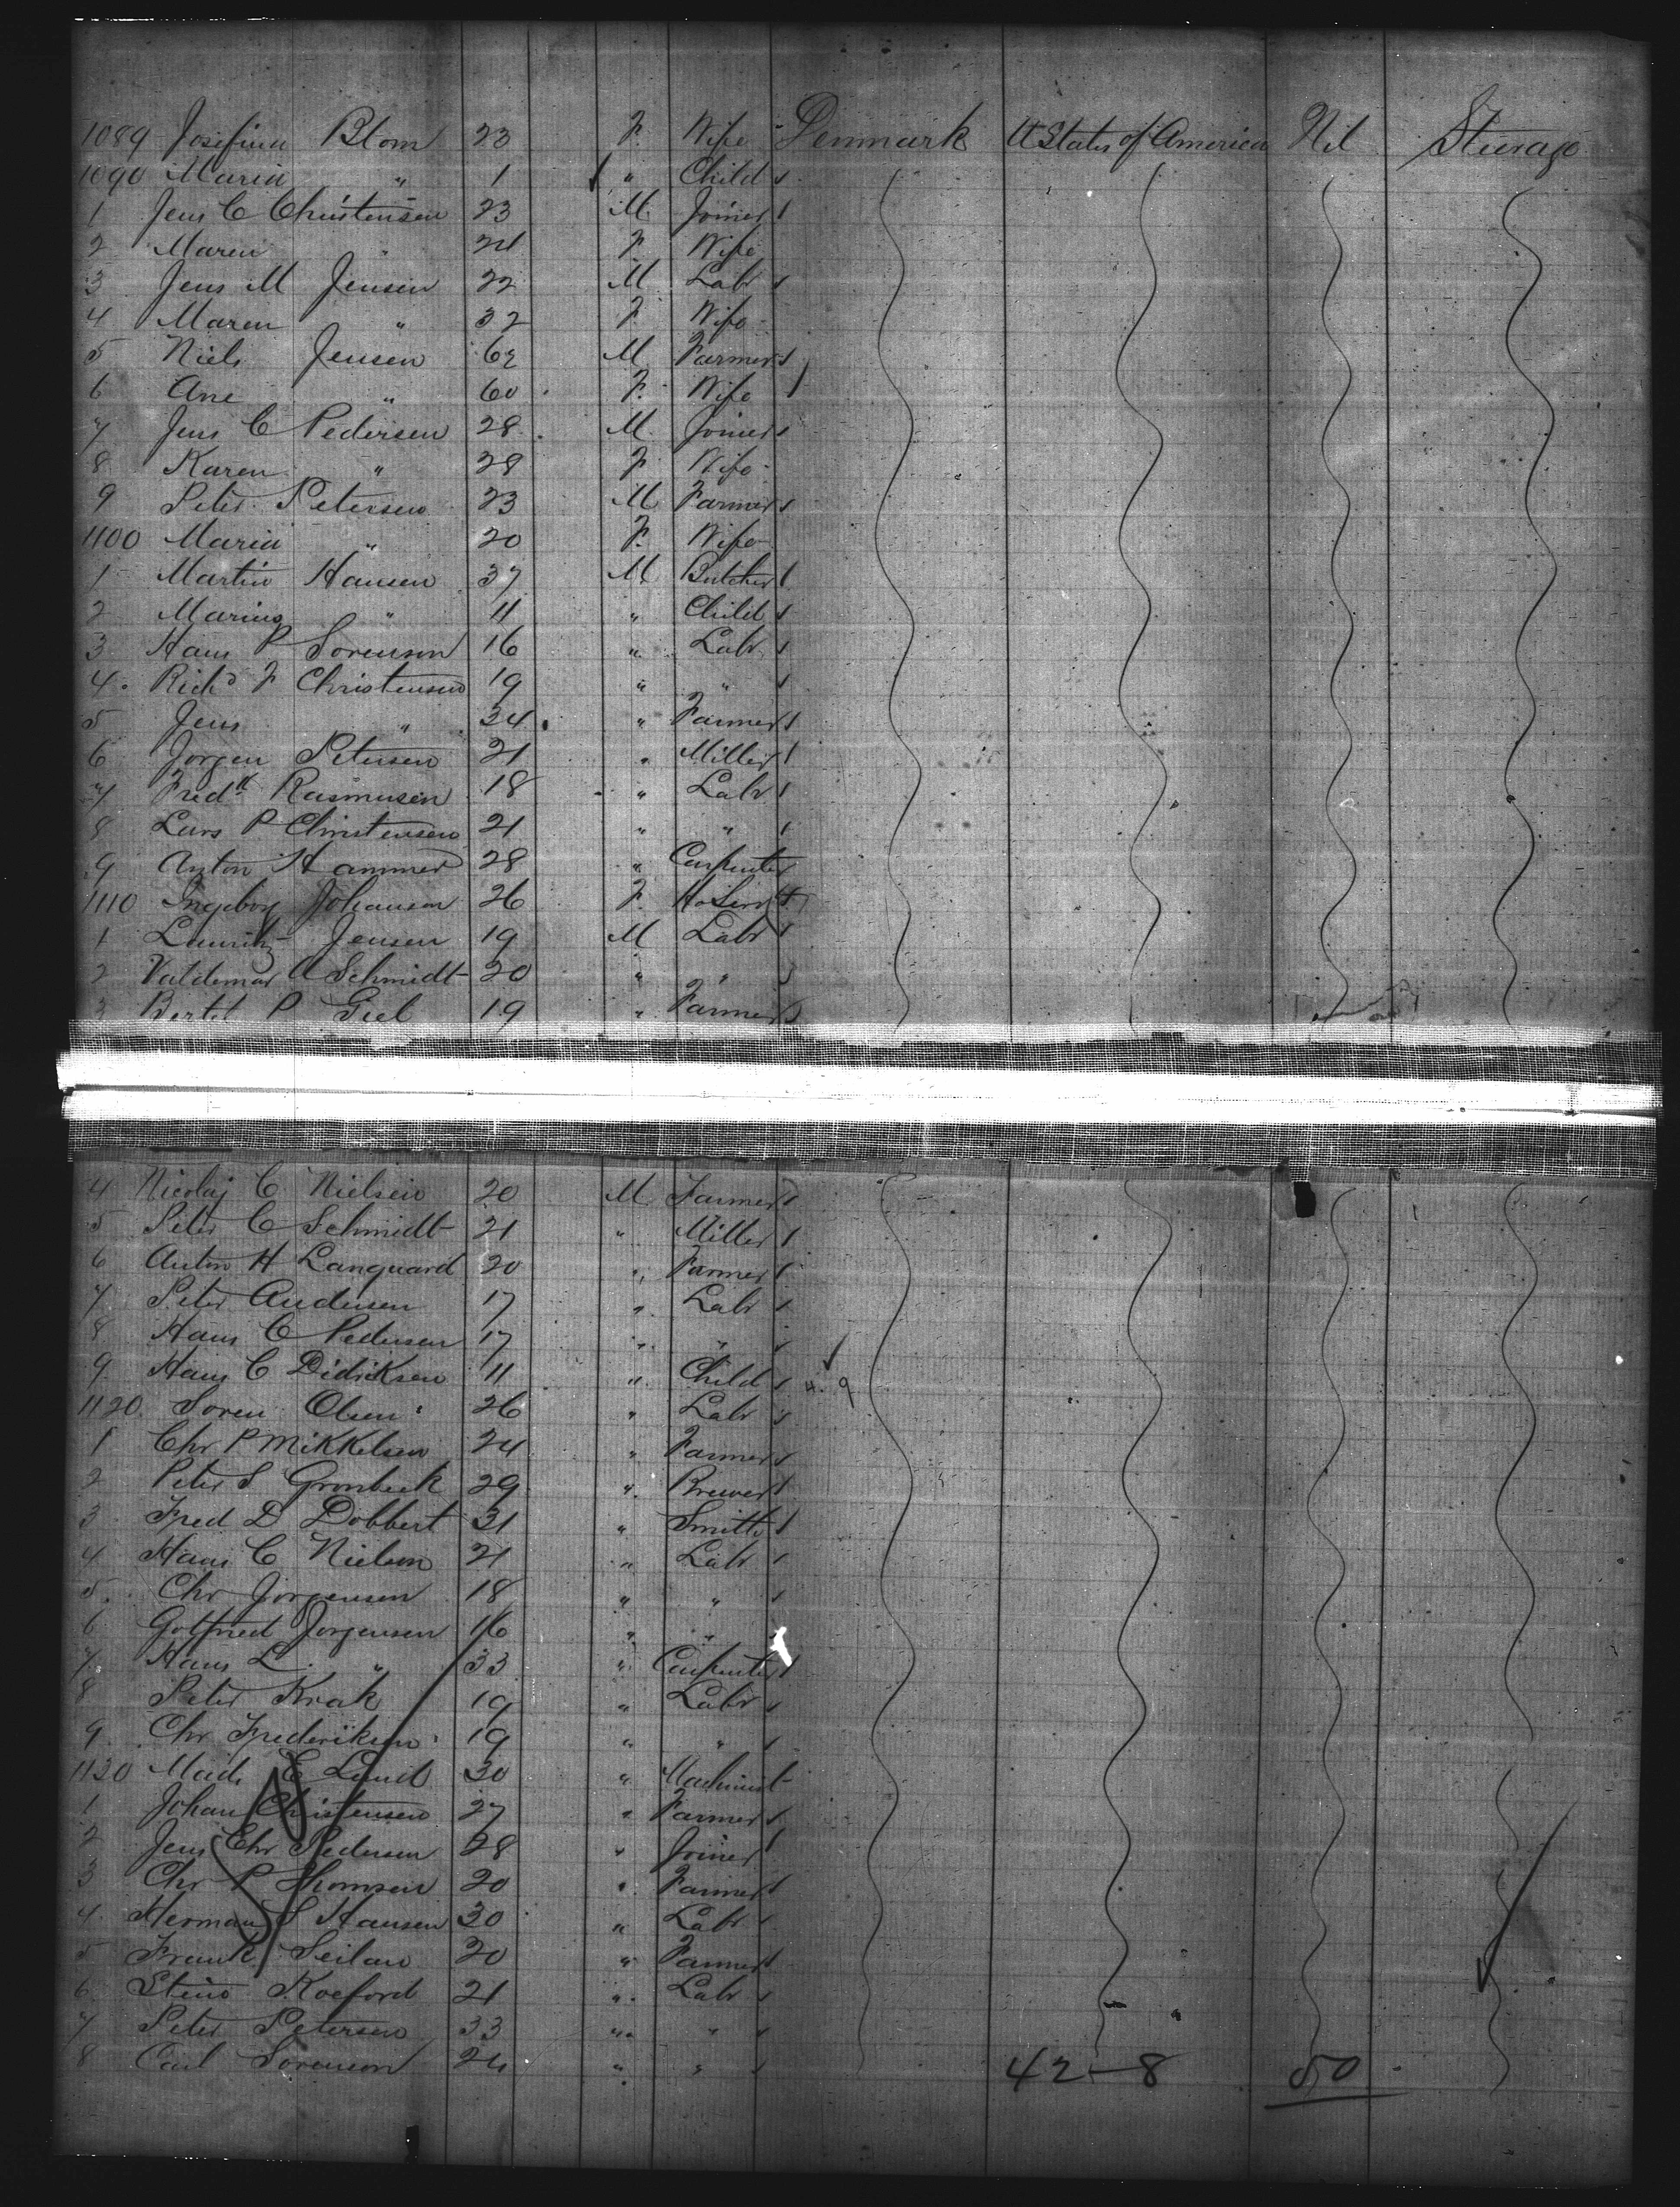 1089 Josefina Blom 23 F. Wife Denmark U States of America Nil Steerage
1090 Maria " 1 " Child
1 Jens C Christensen 23 M. Joiner
2 Maren " 24 F. Wife
3 Jens M Jensen 22 M Labr
4 Maren " 32 F. Wife
5 Niels Jensen 62 M Farmer
6 Ane " 60 F. Wife
7 Jens C Pedersen 28 M. Joiner
8 Karen " 28 F Wife
9 Peter Petersen 23 M Farmer
1100 Maria " 20 F. Wife
1 Martin Hansen 37 M Butcher
2 Marius " 11 " Child
3 Hans P Sorenson 16 " Labr
4 Richd F Christensen 19 " "
5 Jens " 34 " Farmer
6 Jorgen Petersen 21 " Miller
7 Fredk Rasmusen 18 " Labr
8 Lars P Christensen 21 " "
9 Anton Hammer 28 " Carpenter
1110 Ingeborg Johansen 26 F. Ho Servt
1 Lauritz Jensen 19 M Labr
2 Valdemar A Schmidt 20 " "
3 Bertel P Giel 19 " Farmer
4 Nicolaj C Nielsen 20 M Farmer
5 Peter C Schmidt 21 " Miller
6 Anton H Languard 20 " Farmer
7 Peter Andersen 17 " Labr
8 Hans C Pedersen 17 " "
9 Hans C Didriksen 11 " Child
1120 Soren Olsen 26 " Labr
1 Chr P Mikkelsen 24 " Farmer
2 Peter S Gronbeck 29 " Brewer
3 Fred D Dobbert 31 " Smith
4 Hans C Nielsen 21 " Labr
5 Chr Jorgensen 18 " "
6 Gotfried Jorgensen 16 " "
7 Hans L. " 33 " Carpenter
8 Peter Krak 19 " Labr
9 Chr Frederiksen 19 " "
1130 Mads C Lund 30 " Machinist
1 Johan Christensen 27 " Farmer
2 Jens Chr Pedersen 28 " Joiner
3 Chr P Thomsen 20 " Farmer
4 Herman S Hansen 30 " Labr
5 Frank Seilan 20 " Farmer
6 Steno Koeford 21 " Labr
7 Peter Petersen 33 " "
8 Carl Sorenson 24 " "
42-8 50